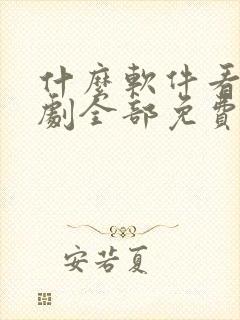 什麼軟件看
劇全部免費
安若夏